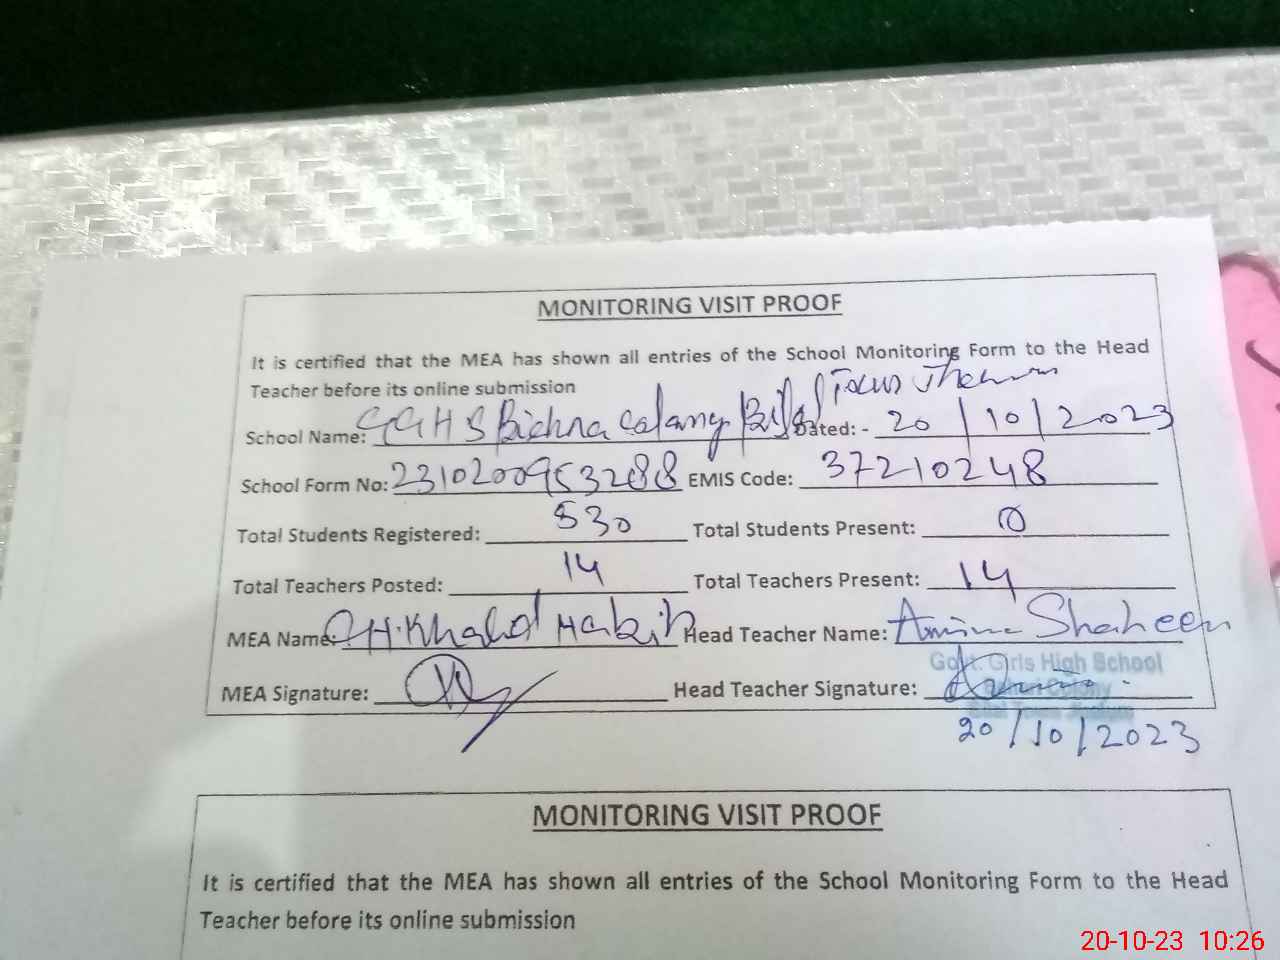 MONITORING VISIT PROOF
It is certified that the MEA has shown all entries of the School Monitoring Form to the Head
Teacher before its online submission
School Name: GGHS Bichna Colony Bilal Town Jhelum Dated: - 20/10/2023
School Form No: 2310200953288 EMIS Code: 37210248
Total Students Registered: 530 Total Students Present: 0
Total Teachers Posted: 14 Total Teachers Present: 14
MEA Name: CH. Khalid Habib Head Teacher Name: Amina Shaheen
Govt. Girls High School
MEA Signature: Head Teacher Signature:
Colony
20/10/2023
MONITORING VISIT PROOF
It is certified that the MEA has shown all entries of the School Monitoring Form to the Head
Teacher before its online submission
20-10-23 10:26